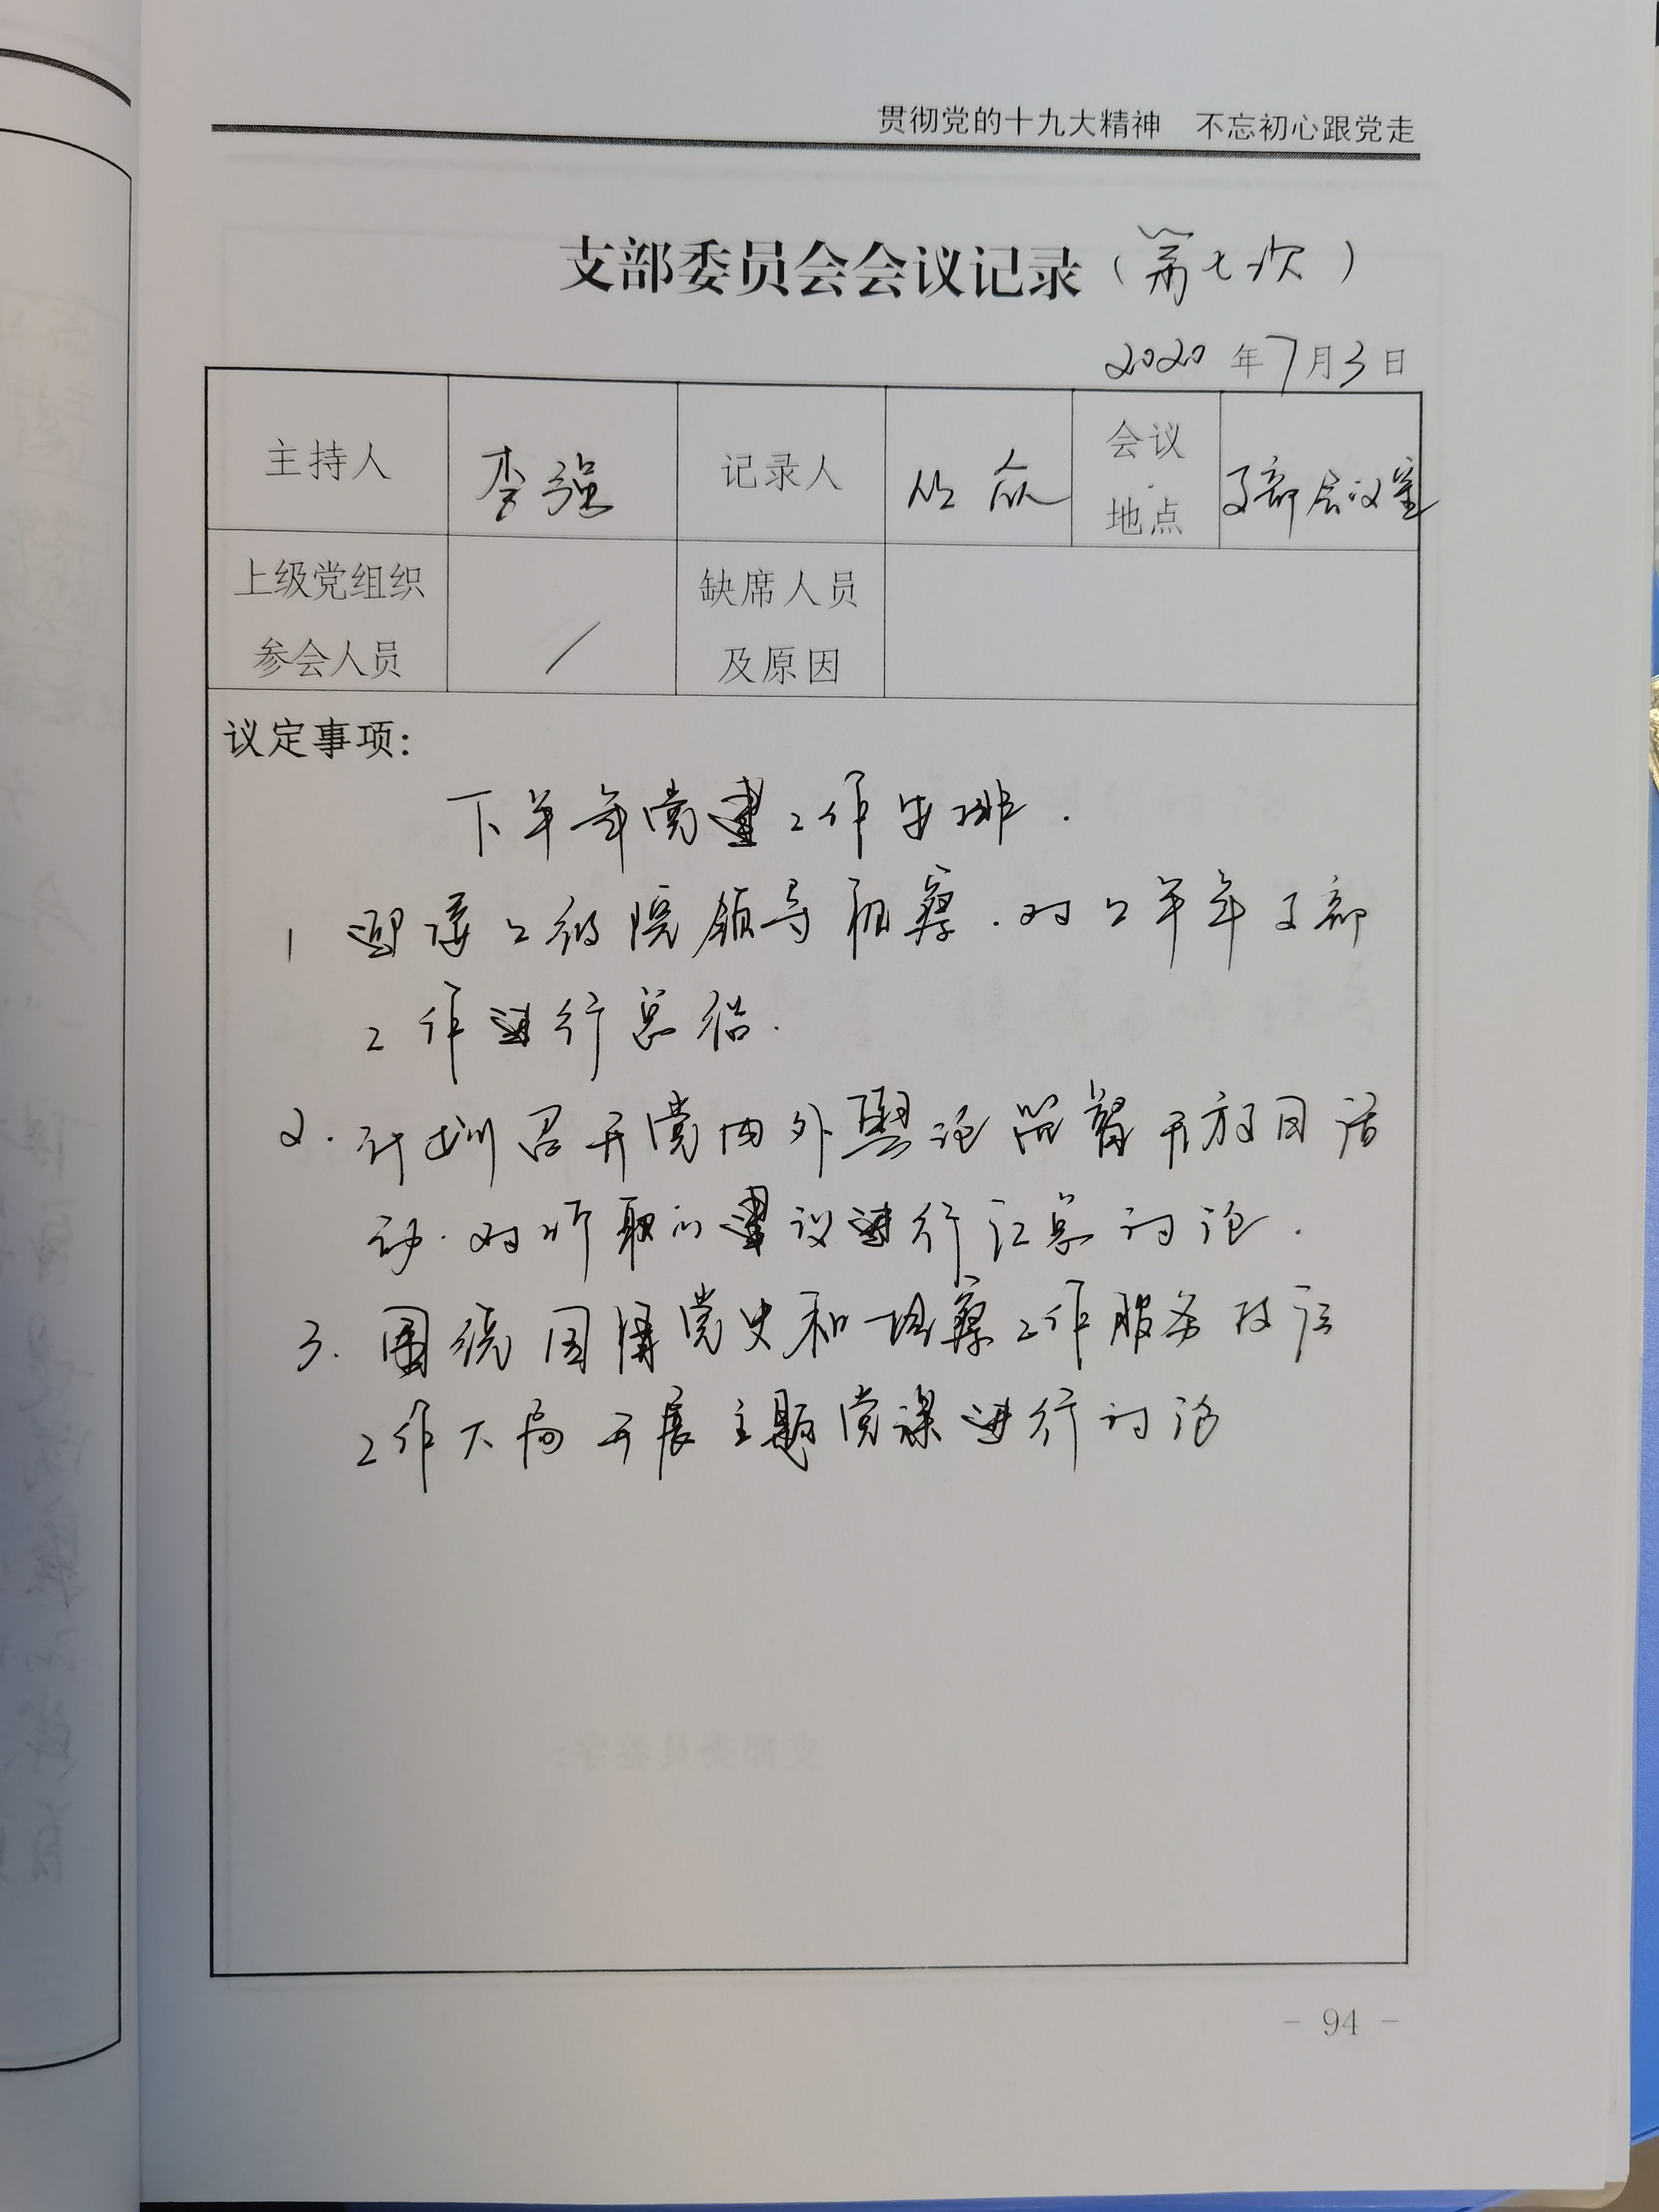 贯彻党的十九大精神 不忘初心跟党走
支部委员会会议记录（第七次）
2020年7月3日
主持人 李强 记录人 丛欣 会议地点 支部会议室
上级党组织参会人员 / 缺席人员及原因
议定事项：
下半年党建工作安排.
1 迎接上级院领导视察.对上半年支部
工作进行总结.
2.计划召开党内外舆论监督开放日活
动.对听取的建议进行汇总讨论.
3.围绕国情党史和检察工作服务技法
工作大局开展主题党课进行讨论
- 94 -